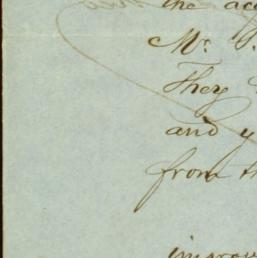 the ac
Mr.
They
and y
from th
improv